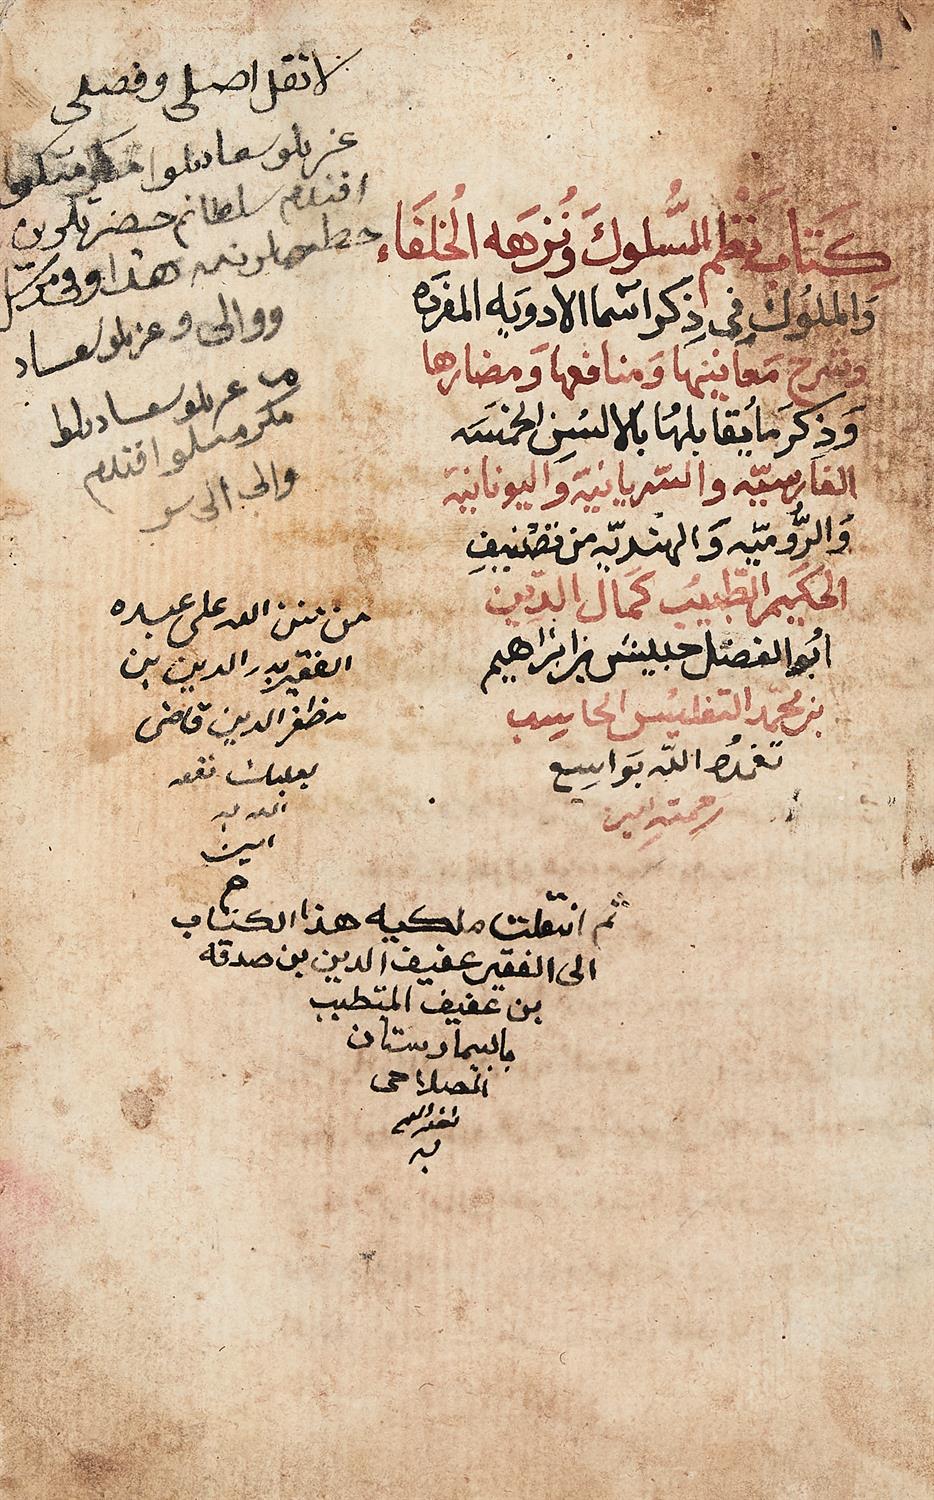 كتاب في نظم السلوك ونزهه الخلفاء
والملوك في ذكر اسما الادويه المفرده
وشرح معانيها ومنافعها ومضارها
وذكر ما يقابلها بالالسن الخمسه
الفارسيّه والسريانيّة واليونانية
والرّوميّه والهنديّه من تصنيف
الحكيم الطبيب كمال الدين
ابو الفضل حبيش بن ابراهيم
بن محمد التفليسي الحاسب
تغمده الله بواسع
رحمته امين
لا تقل اصلي وفصلي
عزيلو سعادتلو
افندم سلطانم حضرتلرين
هذا
ووالى وعزيلو
مكرمتلو افندم
والى الى
من منن الله على عبده
الفقير بدر الدين بن
مظفر الدين قاضى
بعلبك نفعه
الله به
امين
م
ثم انتقلت ملكيه هذا الكتاب
الى الفقير عفيف الدين بن صدقه
بن عفيف المتطبب
بالبيمارستان
الصلاحى
نفعه الله
به